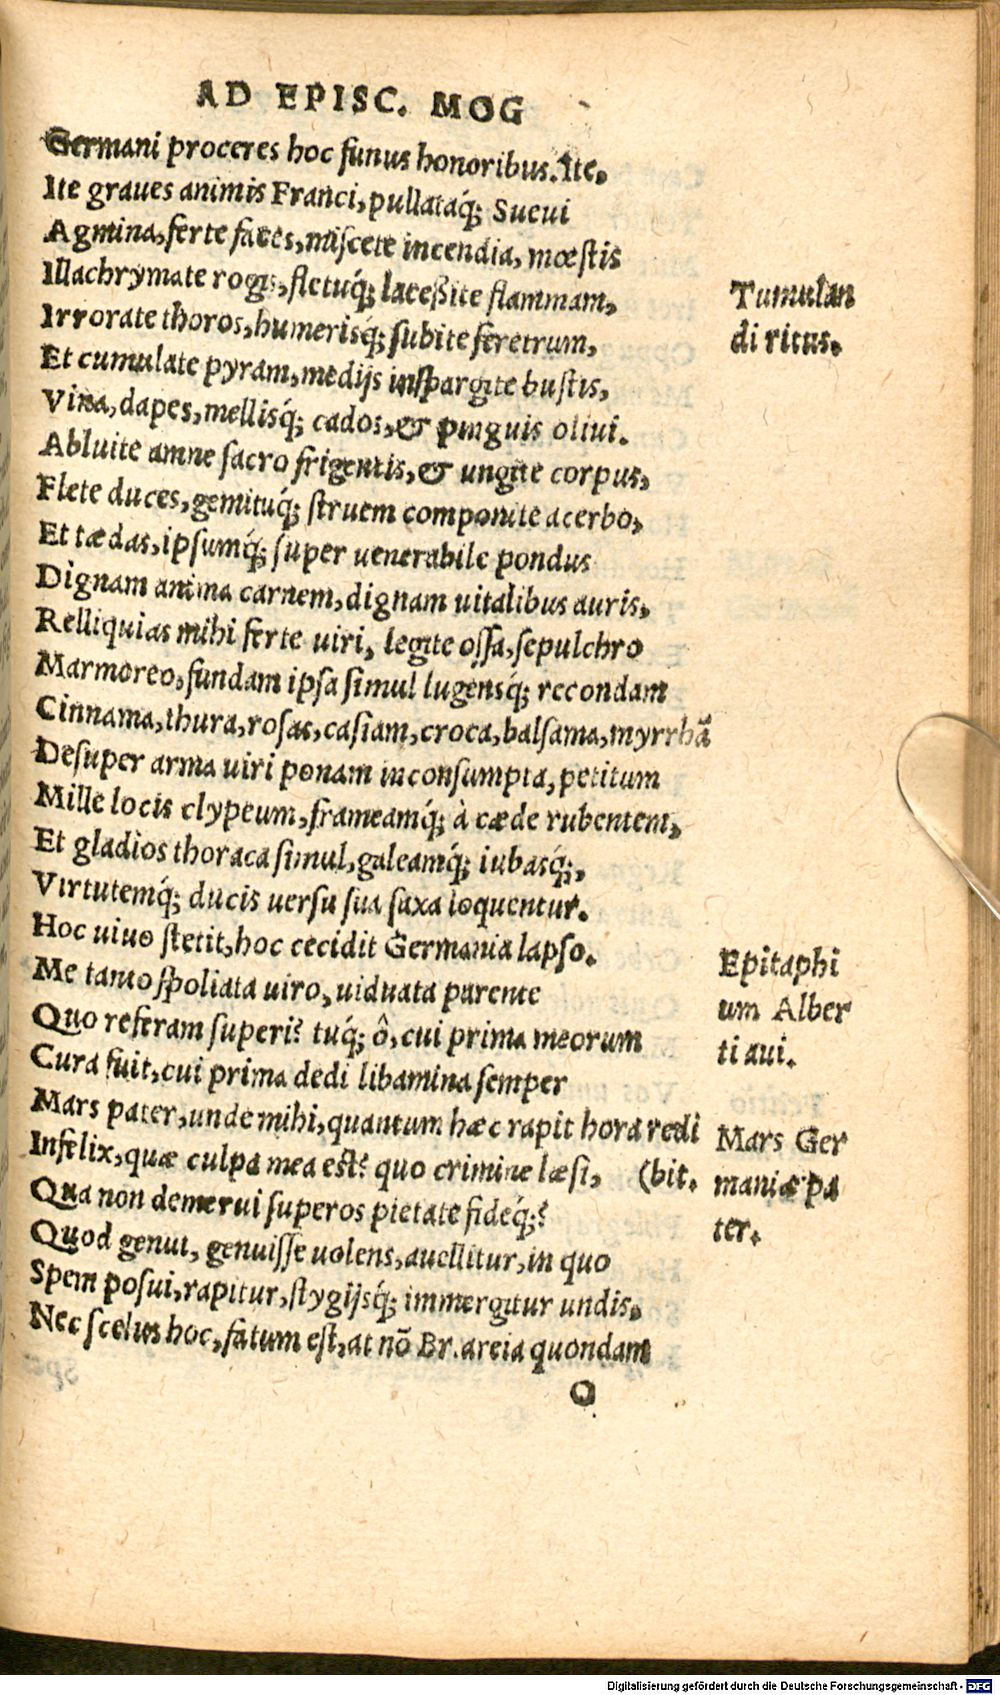 AD EPISC. MOG
Germani proceres hoc funus honoribus. Ite,
Ite graues animis Franci, pullataq́; Sueui
Agmina, ferte faces, miscete incendia, mœstis
Illachrymate rogis, fletuq́; laceßite flammam,
Irrorate thoros, humerisq́; subite feretrum,
Et cumulate pyram, medijs inspargite bustis,
Vina, dapes, mellisq́; cados, & pinguis oliui.
Abluite amne sacro frigentis, & ungite corpus,
Flete duces, gemituq́; struem componite acerbo,
Et tædas, ipsumq́; super uenerabile pondus
Dignam anima carnem, dignam uitalibus auris,
Relliquias mihi ferte uiri, legite ossa, sepulchro
Marmoreo, fundam ipsa simul lugensq́; recondam
Cinnama, thura, rosas, casiam, croca, balsama, myrrhā
Desuper arma uiri ponam inconsumpta, petitum
Mille locis clypeum, frameamq́; à cæde rubentem,
Et gladios thoraca simul, galeamq́; iubasq́;,
Virtutemq́; ducis uersu sua saxa loquentur.
Hoc uiuo stetit, hoc cecidit Germania lapso.
Me tanto spoliata uiro, uiduata parente
Quo referam superi? tuq́; ô, cui prima meorum
Cura fuit, cui prima dedi libamina semper
Mars pater, unde mihi, quantum hæc rapit hora redi
Infelix, quæ culpa mea est? quo crimine læsi, (bit.
Qua non demerui superos pietate fideq́;?
Quod genui, genuisse uolens, auellitur, in quo
Spem posui, rapitur, stygijsq́; immergitur undis.
Nec scelus hoc, fatum est, at nō Briareia quondam
Q
Tumulan
di ritus.
Epitaphi
um Alber
ti aui.
Mars Ger
maniæ pa
ter.
Digitalisierung gefördert durch die Deutsche Forschungsgemeinschaft - DFG